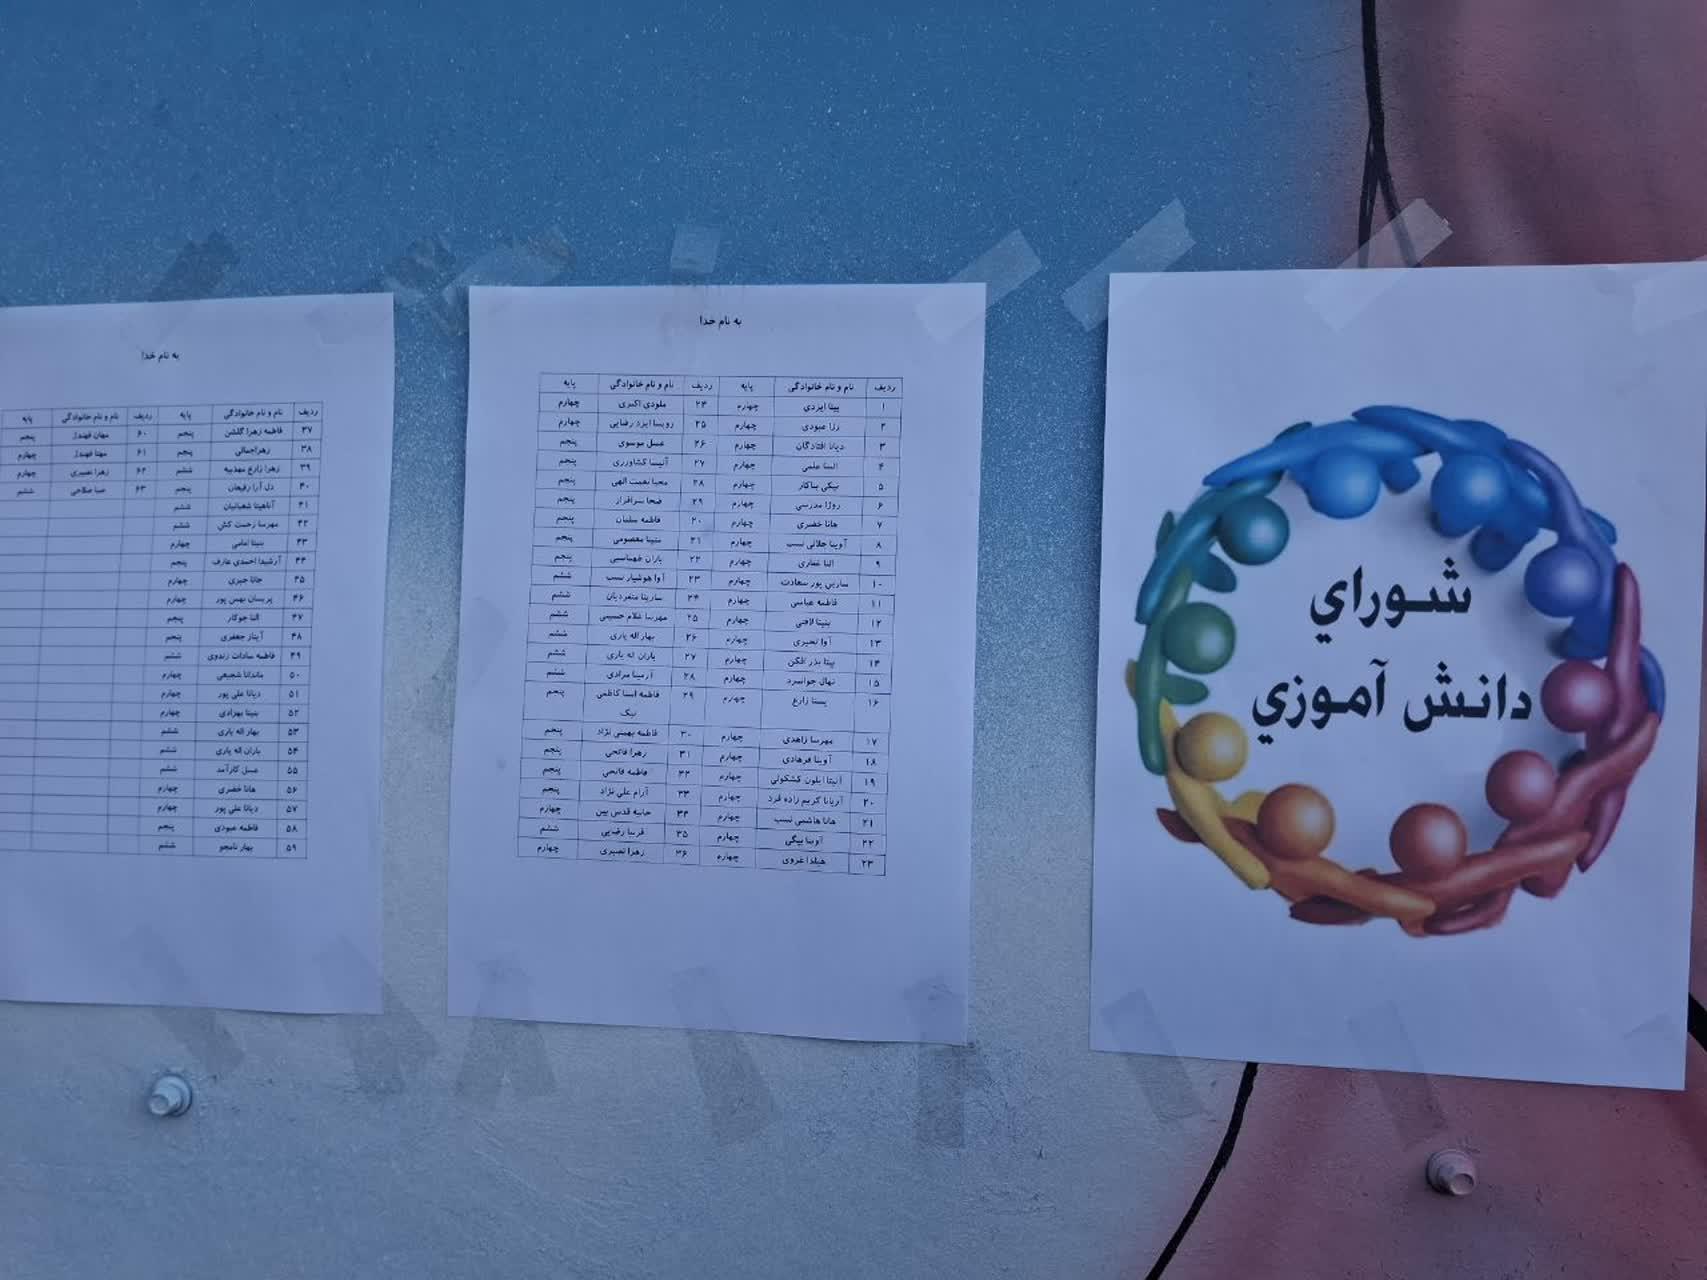 شوراي
دانش آموزي
به نام خدا
ردیف نام و نام خانوادگی پایه ردیف نام و نام خانوادگی پایه
۱ بیتا ایزدی چهارم ۲۴ ملودی اکبری چهارم
۲ رزا عبودی چهارم ۲۵ رویسا ایزد رضایی چهارم
۳ دیانا افتادگان چهارم ۲۶ عسل موسوی پنجم
۴ السا علمی چهارم ۲۷ آنیسا کشاورزی پنجم
۵ نیکی بناکار چهارم ۲۸ محیا نعمت الهی پنجم
۶ روژا مدرسی چهارم ۲۹ ضحا سرافراز پنجم
۷ هانا خضری چهارم ۲۰ فاطمه سلمان پنجم
۸ آوینا جلالی نسب چهارم ۲۱ ستیتا معصومی پنجم
۹ النا غفاری چهارم ۲۲ باران طهماسبی پنجم
۱۰ سارین پور سعادت چهارم ۲۳ آوا هوشیار نسب ششم
۱۱ فاطمه عباسی چهارم ۲۴ سارینا متفردیان ششم
۱۲ بنیتا لافتی چهارم ۲۵ مهرسا غلام حسینی ششم
۱۳ آوا نصیری چهارم ۲۶ بهار اله یاری ششم
۱۴ بیتا بذر افکن چهارم ۲۷ باران اله یاری ششم
۱۵ نهال جوانمرد چهارم ۲۸ آرمینا مرادی ششم
۱۶ یسنا زارع چهارم ۲۹ فاطمه اسنا کاظمی نیک پنجم
۱۷ مهرسا زاهدی چهارم ۳۰ فاطمه بهمنی نژاد پنجم
۱۸ آوینا فرهادی چهارم ۳۱ زهرا فاتحی پنجم
۱۹ آنیتا ایلون کشکولی چهارم ۳۲ فاطمه فاتحی پنجم
۲۰ آریانا کریم زاده فرد چهارم ۳۳ آرام علی نژاد پنجم
۲۱ هانا هاشمی نسب چهارم ۳۴ حانیه قدس بین چهارم
۲۲ آوینا بیگی چهارم ۳۵ فریبا رضایی ششم
۲۳ هیلدا غروی چهارم ۳۶ زهرا نصیری چهارم
به نام خدا
ردیف نام و نام خانوادگی پایه ردیف نام و نام خانوادگی پایه
۳۷ فاطمه زهرا گلشن پنجم ۶۰ مهان فهندژ پنجم
۳۸ زهراجمالی پنجم ۶۱ مهنا فهندژ چهارم
۳۹ زهرا زارع مهذبیه ششم ۶۲ زهرا نصیری چهارم
۴۰ دل آرا رفیعان پنجم ۶۳ صبا صلاحی ششم
۴۱ آناهیتا شعبانیان ششم
۴۲ مهرسا زحمت کش ششم
۴۳ بنیتا امامی چهارم
۴۴ آرشیدا احمدی عارف پنجم
۴۵ جانا جیری چهارم
۴۶ پریسان بهمن پور چهارم
۴۷ النا جوکار پنجم
۴۸ آیناز جعفری پنجم
۴۹ فاطمه سادات زندوی ششم
۵۰ ماندانا شجیعی چهارم
۵۱ دیانا علی پور چهارم
۵۲ بنیتا بهزادی چهارم
۵۳ بهار اله یاری ششم
۵۴ باران اله یاری ششم
۵۵ عسل کارآمد ششم
۵۶ هانا خضری چهارم
۵۷ دیانا علی پور چهارم
۵۸ فاطمه عبودی پنجم
۵۹ بهار نامجو ششم